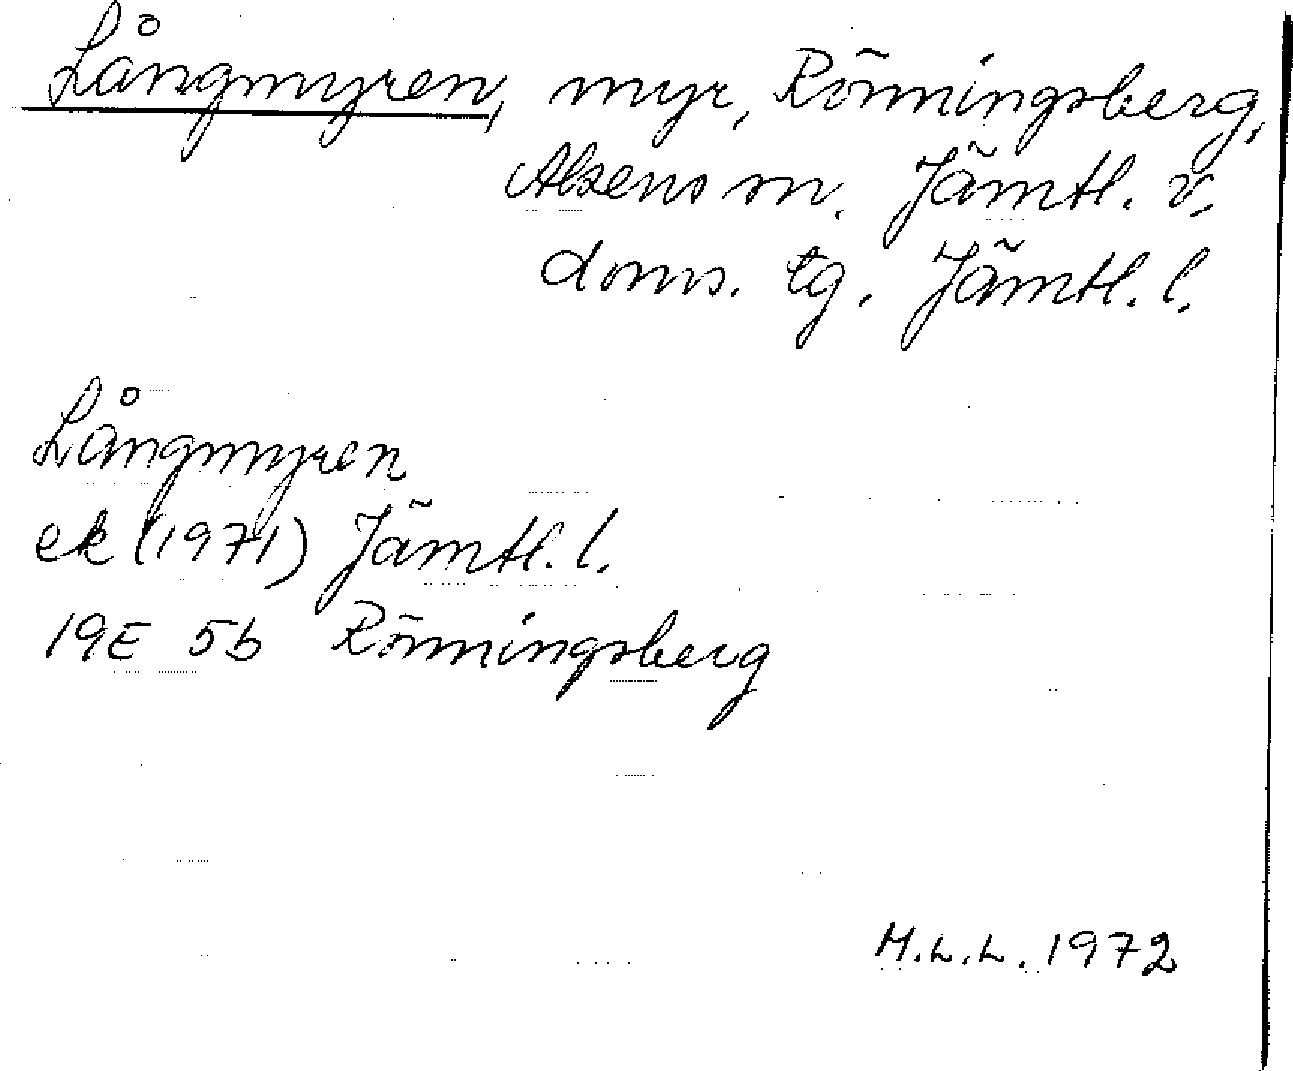 Långmyren, myr, Rönningsberg,
Alsens sn. Jämtl. v.
doms. tg. Jämtl. l.
Långmyren
ek (1971) Jämtl. l.
19E 5b Rönningsberg
M.L.L. 1972